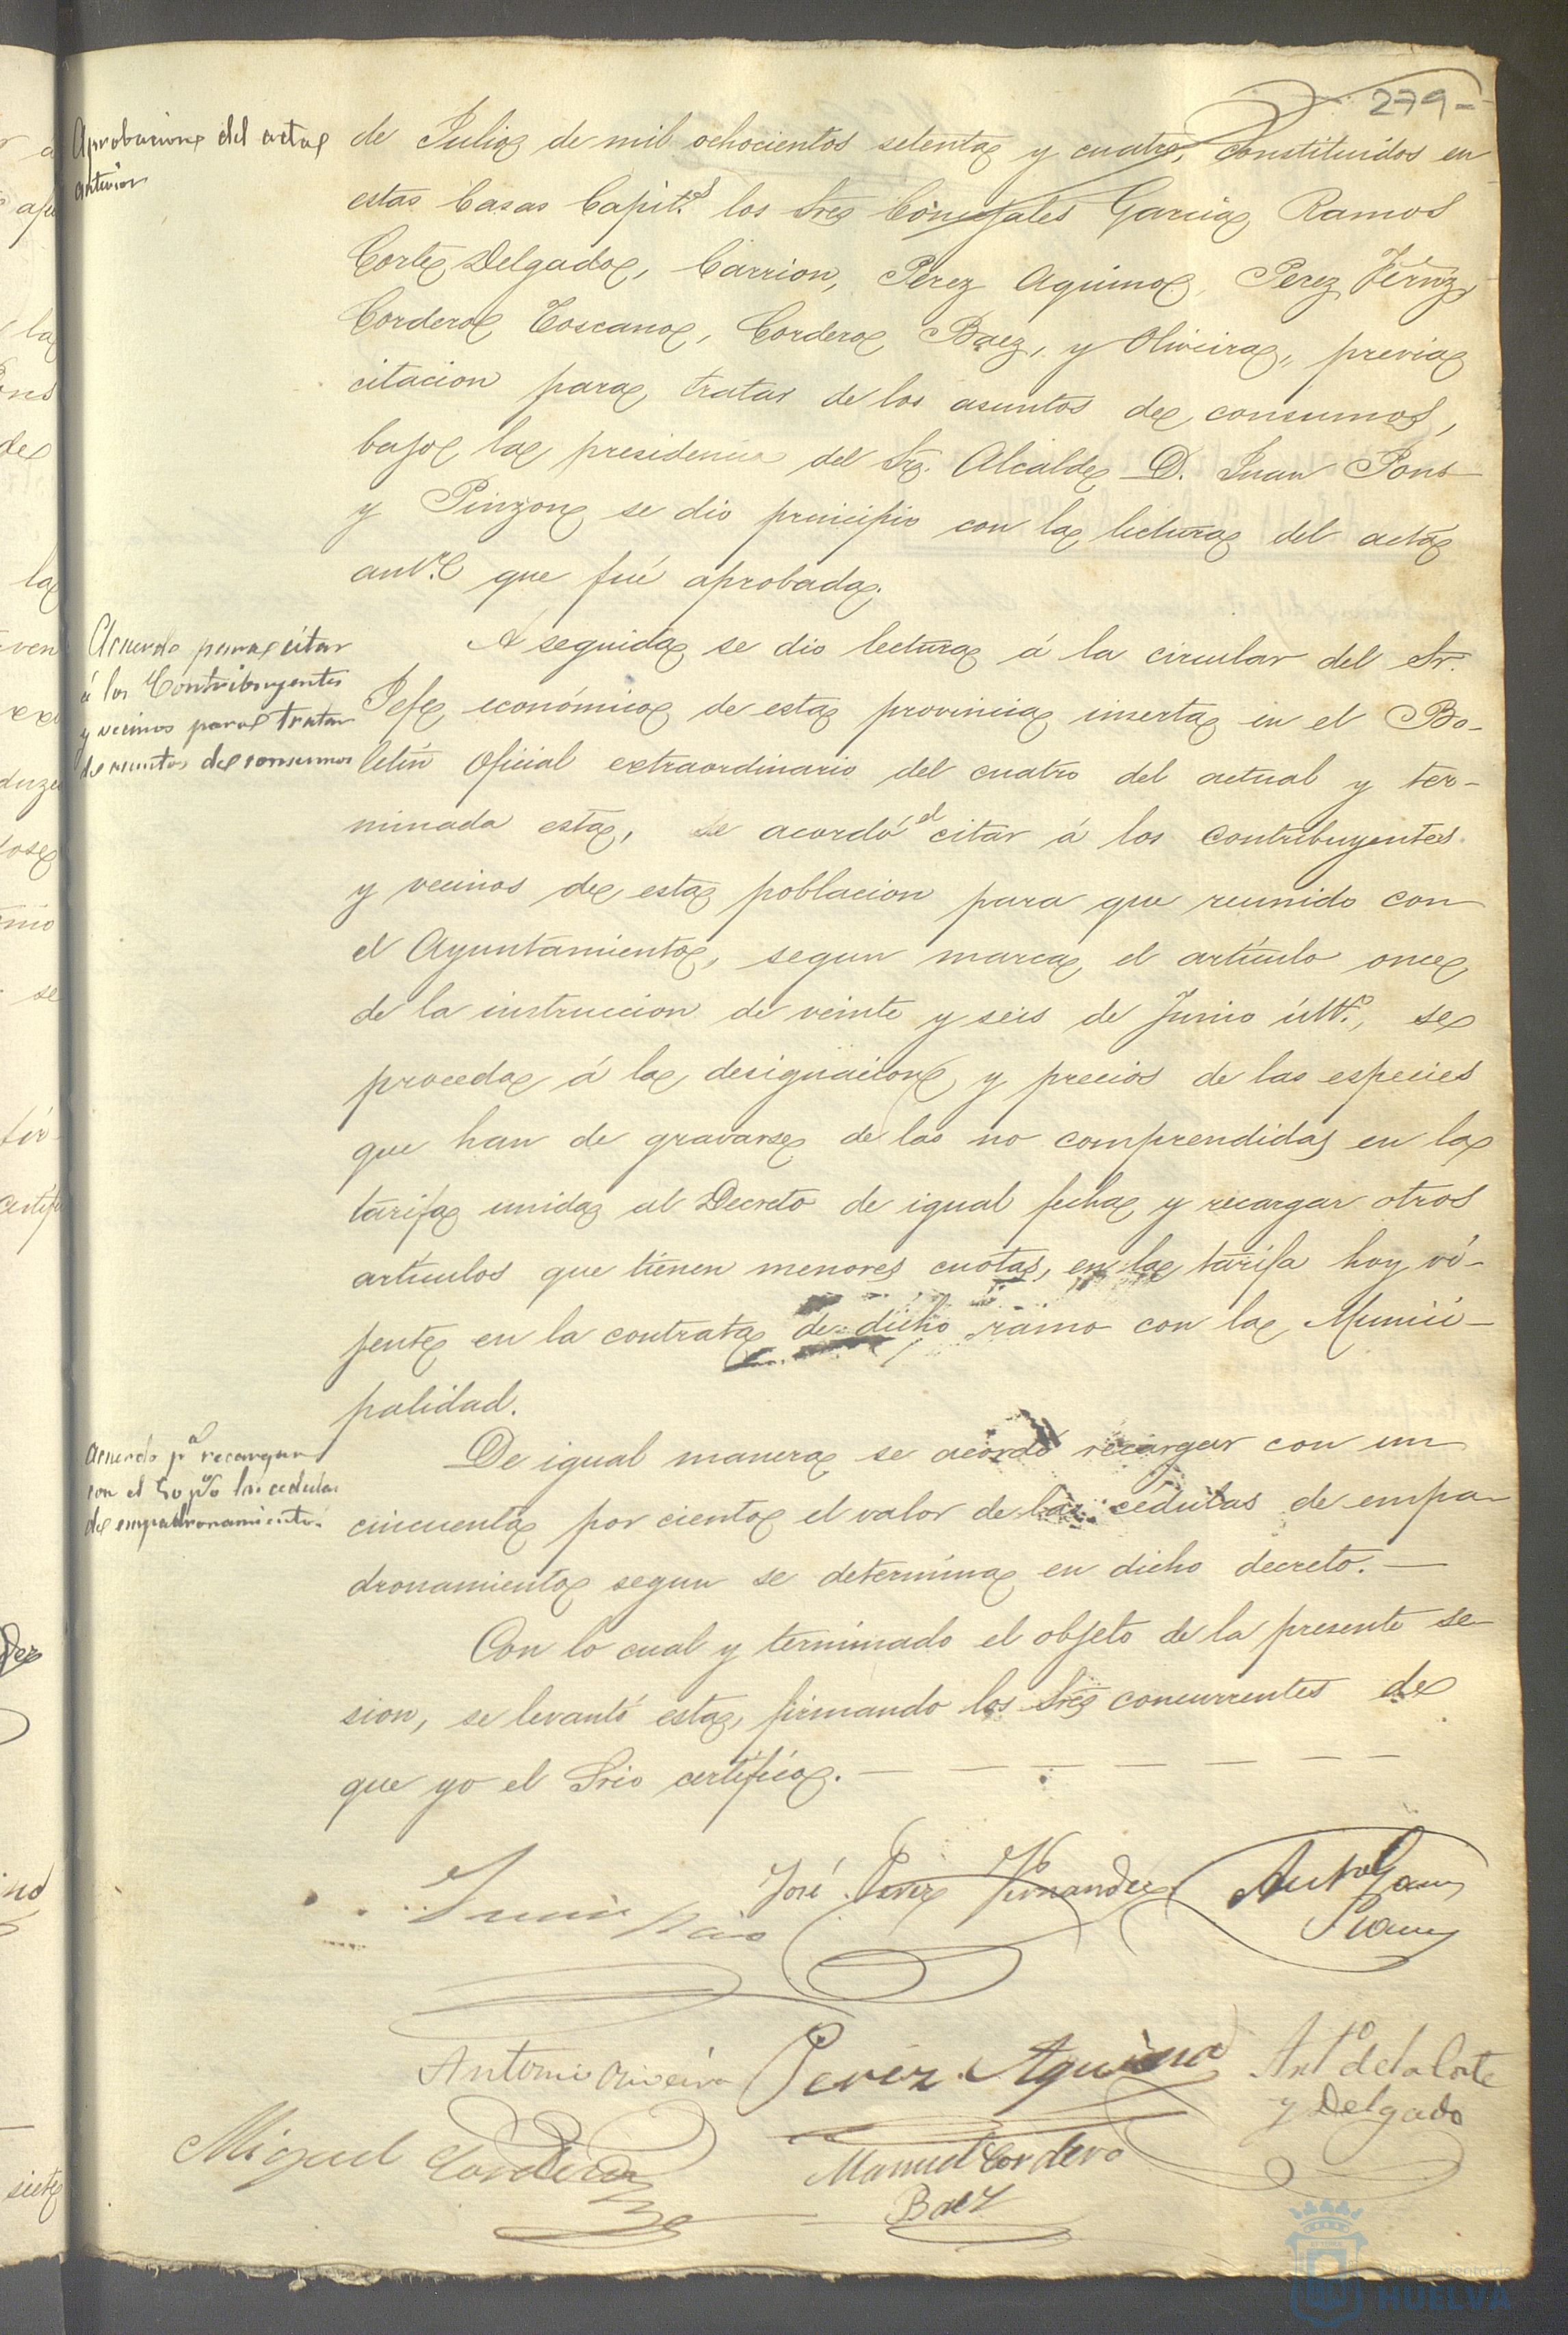 279-
Aprobacion del acta
anterior
de Julio de mil ochocientos setenta y cuatro, constituidos en
estas Casas Capit.s los Sres Concejales Garcia Ramos
Corte Delgado, Carrion, Perez Aquino, Perez Fernz,
Cordero Toscano, Cordero Baez, y Oliveira, previa
citacion para tratar de los asuntos de consumos,
bajo la presidencia del Sr. Alcalde D. Juan Pons
y Pinzon se dio principio con la lectura del acta
ant.e que fué aprobada.
Acuerdo para citar
á los Contribuyentes
y vecinos para tratar
de asuntos de consumos
A seguida se dio lectura á la circular del Sr.
Jefe económico de esta provincia inserta en el Bo-
letin oficial extraordinario del cuatro del actual y ter-
minada esta, se acordó el citar á los contribuyentes
y vecinos de esta poblacion para que reunido con
el Ayuntamiento, segun marca el articulo once
de la instruccion de veinte y seis de Junio últ.o, se
proceda á la designacion y precios de las especies
que han de gravarse de las no comprendidas en la
tarifa unida al Decreto de igual fecha y recargar otros
articulos que tienen menores cuotas, en la tarifa hoy vi-
jente en la contrata de dicho ramo con la Munici-
palidad.
Acuerdo p.a recargar
con el 50 p% las cedulas
de empadronamiento.
De igual manera se acordó recargar con un
cincuenta por ciento el valor de las cédulas de empa-
dronamiento segun se determina en dicho decreto.—
Con lo cual y terminado el objeto de la presente se-
sion, se levantó esta, firmando los Sres concurrentes de
que yo el Srio certifico.— — — — — — —
José Perez Fernandez
Ant.o Garcia
Ramos
Antonio Oliveira
Perez Aquino
Ant.o de la Corte
y Delgado
Miguel Cordero
Manuel Cordero
Baez
Ayuntamiento de
HUELVA